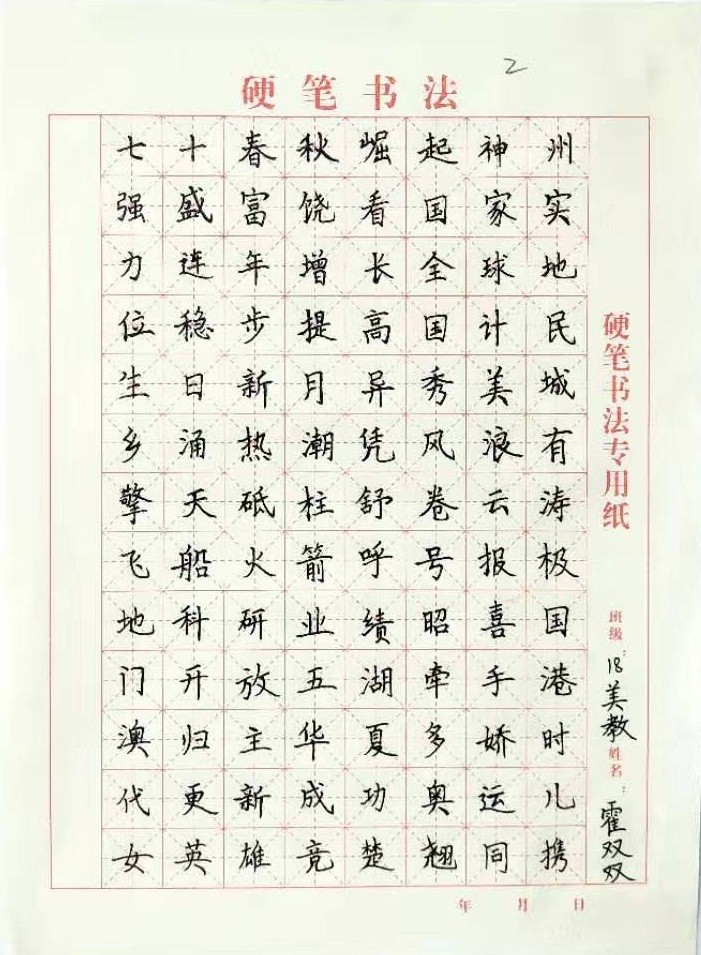 2
硬笔书法
七十春秋崛起神州
强盛富饶看国家实
力连年增长全球地
位稳步提高国计民
生日新月异秀美城
乡涌热潮凭风浪有
擎天砥柱舒卷云涛
飞船火箭呼号报极
地科研业绩昭喜国
门开放五湖牵手港
澳归主华夏多娇时
代更新成功奥运儿
女英雄竞楚翘同携
硬笔书法专用纸
班级:18美教
姓名:霍双双
年 月 日